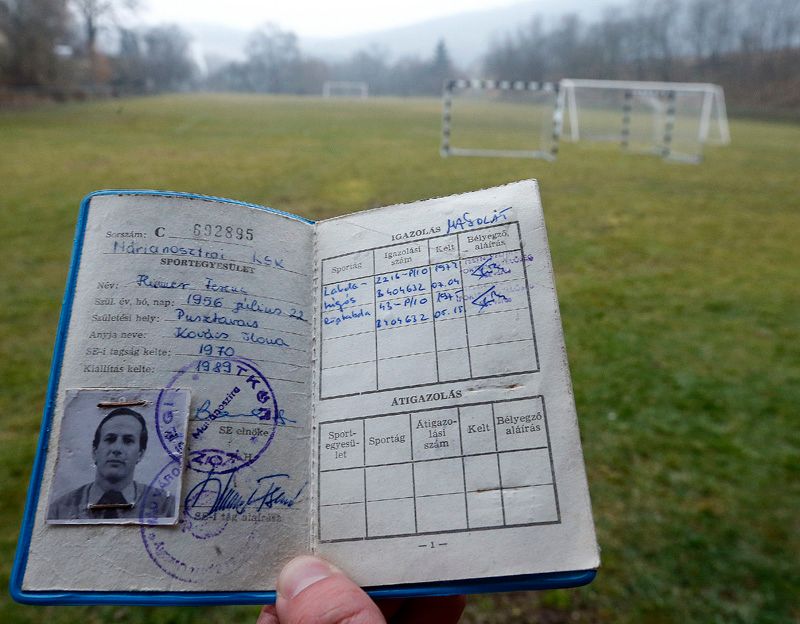 Sorszám: C 692895
Márianosztrai KSK
SPORTEGYESÜLET
Név: Riemer
Szül. év, hó, nap: 1956 július 22
Születési hely: Pusztavacs
Anyja neve: Kovács Ilona
SE-i tagság kelte: 1970
Kiállítás kelte: 1989
SE elnöke
SE-i tag aláírása
IGAZOLÁS MÁSOLAT
Sportág Igazolási szám Kelt Bélyegző, aláírás
Labda- 2216-P/10 1977
rúgás 8404632 07.04
Röplabda 43-P/10 1975
8404632 05.15
ÁTIGAZOLÁS
Sport-egyesü-let Sportág Átigazo-lási szám Kelt Bélyegző aláírás
— 1 —